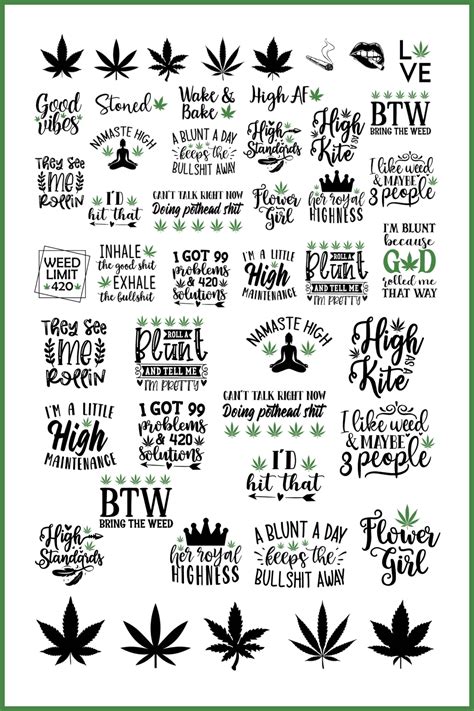 LOVE
Good
vibes
Stoned
Wake &
Bake
High AF
BTW
BRING THE WEED
NAMASTE HIGH
A BLUNT A DAY
keeps the
BULLSHIT AWAY
High
Standards
High
AS A
Kite
They See
ME
Rollin
I'D
hit that
CAN'T TALK RIGHT NOW
Doing pothead shit
Flower
Girl
her royal
HIGHNESS
I like weed
& MAYBE
3 people
WEED
LIMIT
420
INHALE
the good shit
EXHALE
the bullshit
I GOT 99
problems
& 420
solutions
I'M A LITTLE
High
MAINTENANCE
ROLL A
Blunt
AND TELL ME
I'M PRETTY
I'M BLUNT
because
GOD
rolled me
THAT WAY
They See
ME
Rollin
ROLL A
Blunt
AND TELL ME
I'M PRETTY
NAMASTE HIGH
High
AS A
Kite
I'M A LITTLE
High
MAINTENANCE
I GOT 99
problems
& 420
solutions
CAN'T TALK RIGHT NOW
Doing pothead shit
I'D
hit that
I like weed
& MAYBE
3 people
BTW
BRING THE WEED
High
Standards
her royal
HIGHNESS
A BLUNT A DAY
keeps the
BULLSHIT AWAY
Flower
Girl